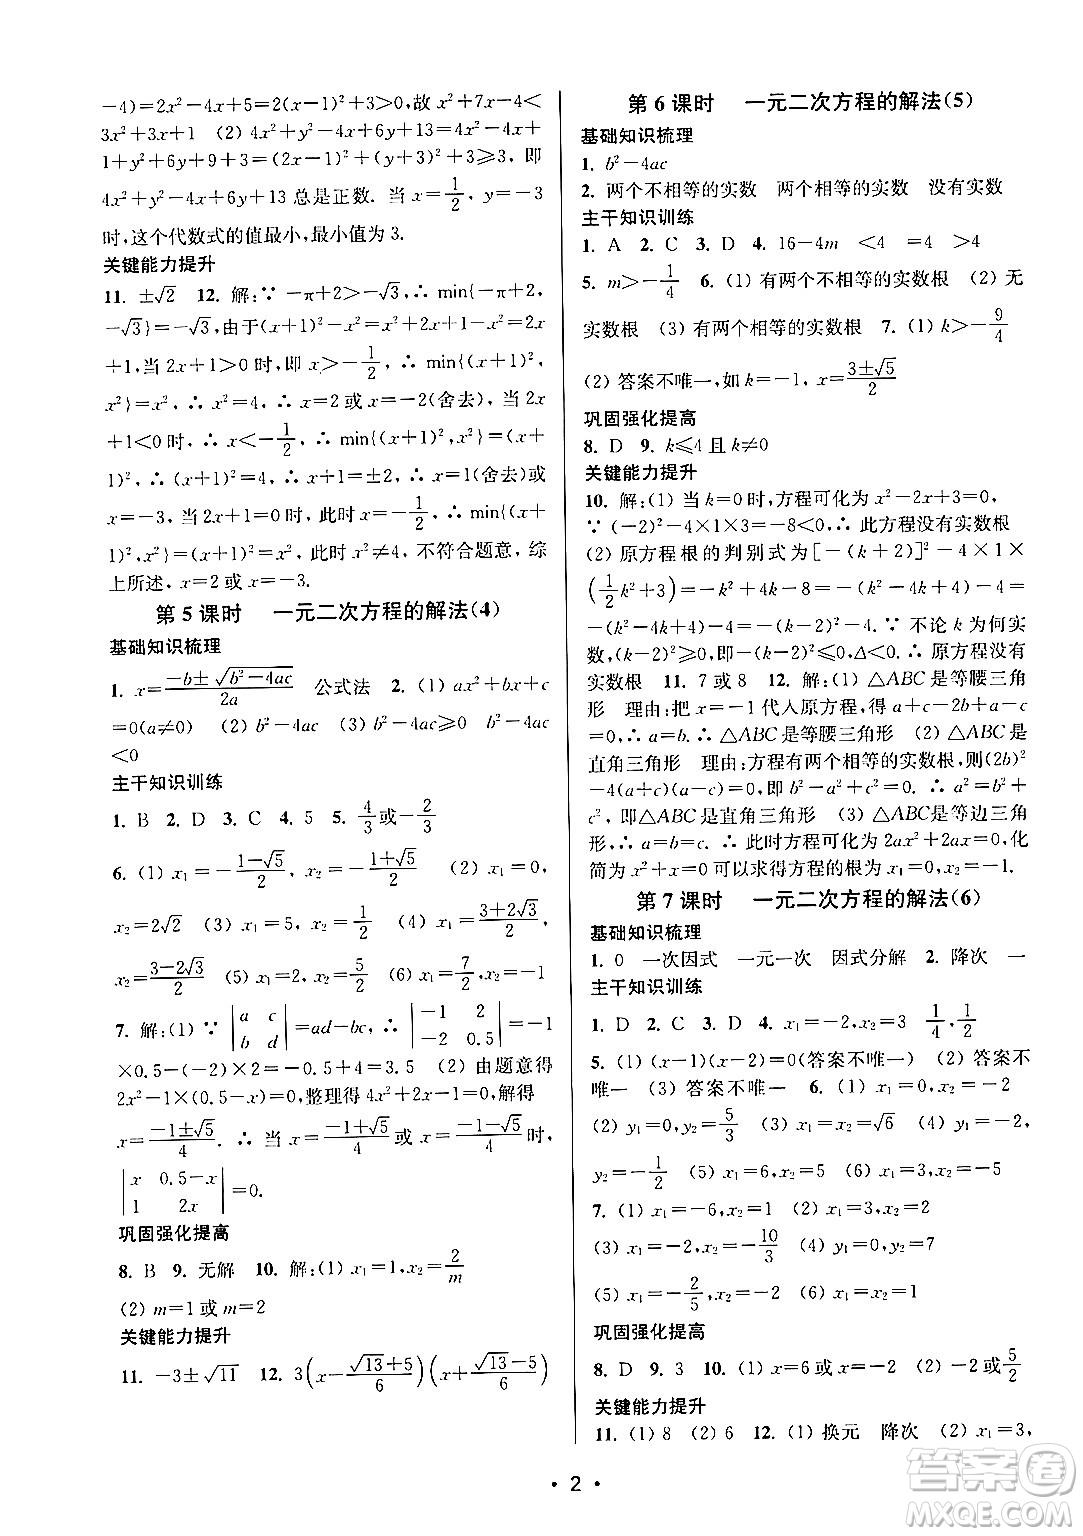 -4)=2x²-4x+5=2(x-1)²+3>0,故 x²+4x<
3x²+3x+1 (2) 4x²+y²-4x+6y+13=4x²-4x+
1+y²+6y+9+3=(2x-1)²+(y+3)²+3≥3,即
4x²+y²-4x+6y+13 总是正数. 当 x=1/2,y=-3
时,这个代数式的值最小,最小值为 3.
关键能力提升
11. ±√2 12. 解:∵ -π+2>-√3,∴ min{-π+2,
-√3}=-√3,由于(x+1)²-x²=x²+2x+1-x²=2x
+1,当 2x+1>0 时,即 x>-1/2,∴ min{(x+1)²,
x²}=x²,∴ x²=4,∴ x=2 或 x=-2(舍去),当 2x
+1<0 时,∴ x<-1/2,∴ min{(x+1)²,x²}=(x+
1)²,∴ (x+1)²=4,∴ x+1=±2,∴ x=1(舍去)或
x=-3,当 2x+1=0,此时 x=-1/2,∴ min{(x+
1)²,x²}=x²=(x+1)²,此时 x²≠4,不符合题意,综
上所述,x=2 或 x=-3.
第 5 课时 一元二次方程的解法(4)
基础知识梳理
1. x=(-b±√(b²-4ac))/2a 公式法 2. (1) ax²+bx+c
=0(a≠0) (2) b²-4ac (3) b²-4ac≥0 b²-4ac
<0
主干知识训练
1. B 2. D 3. C 4. 5 5. 4/3或-2/3
6. (1) x₁=-(1-√5)/2,x₂=-(1+√5)/2 (2) x₁=√2,
x₂=2√2 (3) x₁=5,x₂=-1/3 (4) x₁=(3+2√3)/2,
x₂=(3-2√3)/2 (5) x₁=x₂=1/3 (6) x₁=7/2,x₂=-1
7. 解:(1) ∵ |a c; b d|=ad-bc,∴ |-1 2; -2 0.5|=-1
×0.5-(-2)×2=-0.5+4=3.5 (2) 由题意得
2x²-1×(0.5-x)=0,整理得 4x²+2x-1=0,解得
x=(-1±√5)/4. ∴ 当 x=(-1+√5)/4 或 x=(-1-√5)/4 时,
|x 0.5-x; 1 2x|=0.
巩固强化提高
8. B 9. 无解 10. 解:(1) x₁=1,x₂=2/m
(2) m=1 或 m=2
关键能力提升
11. -3±√11 12. 3(x-(√13+5)/6)(x+(√13-5)/6)
第 6 课时 一元二次方程的解法(5)
基础知识梳理
1. b²-4ac
2. 两个不相等的实数 两个相等的实数 没有实数
主干知识训练
1. A 2. C 3. D 4. 16-4m <4 =4 >4
5. m>-1/4 6. (1) 有两个不相等的实数根 (2) 无
实数根 (3) 有两个相等的实数根 7. (1) k>-9/4
(2) 答案不唯一,如 k=-1,x=(3±√5)/2
巩固强化提高
8. D 9. k≤4 且 k≠0
关键能力提升
10. 解:(1) 当 k=0 时,方程可化为 x²-2x+3=0,
∵ (-2)²-4×1×3=-8<0,∴ 此方程没有实数根
(2) 原方程根的判别式为[-(k+2)]²-4×1×
(1/2k²+3)=k²+4k+4-2k²-12=-k²+4k-8=
-(k²-4k+4)-4=-(k-2)²-4. ∵ 不论 k 为何实
数,(k-2)²≥0,即-(k-2)²≤0,Δ<0. ∴ 原方程没有
实数根 11. 7 或 8 12. 解:(1) △ABC 是等腰三角
形 理由:把 x=-1 代入原方程,得 a+c-2b+a-c
=0,∴ a=b. ∴ △ABC 是等腰三角形 (2) △ABC 是
直角三角形 理由:方程有两个相等的实数根,则(2b)²
-4(a+c)(a-c)=0,即 b²-a²+c²=0. ∴ a²=b²+
c²,即△ABC 是直角三角形 (3) △ABC 是等边三角
形,∴ a=b=c. ∴ 此时方程可化为 2ax²+2ax=0,化
简为 x²+x=0 可以求得方程的根为 x₁=0,x₂=-1.
第 7 课时 一元二次方程的解法(6)
基础知识梳理
1. 0 一次因式 一元一次 因式分解 2. 降次 一
主干知识训练
1. D 2. B 3. D 4. x₁=-2,x₂=3 1/4,1/2
5. (1) (x-1)(x-2)=0(答案不唯一) (2) 答案不
唯一 (3) 答案不唯一 6. (1) x₁=0,x₂=-1
(2) y₁=0,y₂=5/3 (3) x₁=x₂=√6 (4) y₁=3,
y₂=-1/2 (5) x₁=6,x₂=5 (6) x₁=3,x₂=-5
7. (1) x₁=-6,x₂=1 (2) x₁=3,x₂=2
(3) x₁=-2,x₂=-10/3 (4) y₁=0,y₂=7
(5) x₁=-2/5,x₂=2 (6) x₁=x₂=1
巩固强化提高
8. D 9. 3 10. (1) x=6 或 x=-1 (2) -2 或 5/2
关键能力提升
11. (1) 8 (2) 6 12. (1) 换元 降次 (2) x₁=3,
· 2 ·
答案圈
MXQE.COM